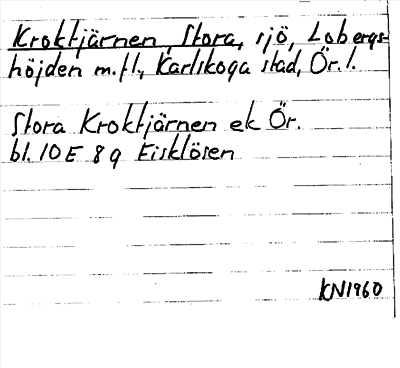 Kroktjärnen, Stora, sjö, Lobergs-
höjden m.fl., Karlskoga stad, Ör. l.
Stora Kroktjärnen ek Ör.
bl. 10 E 8 g Fisklösen
KN1960